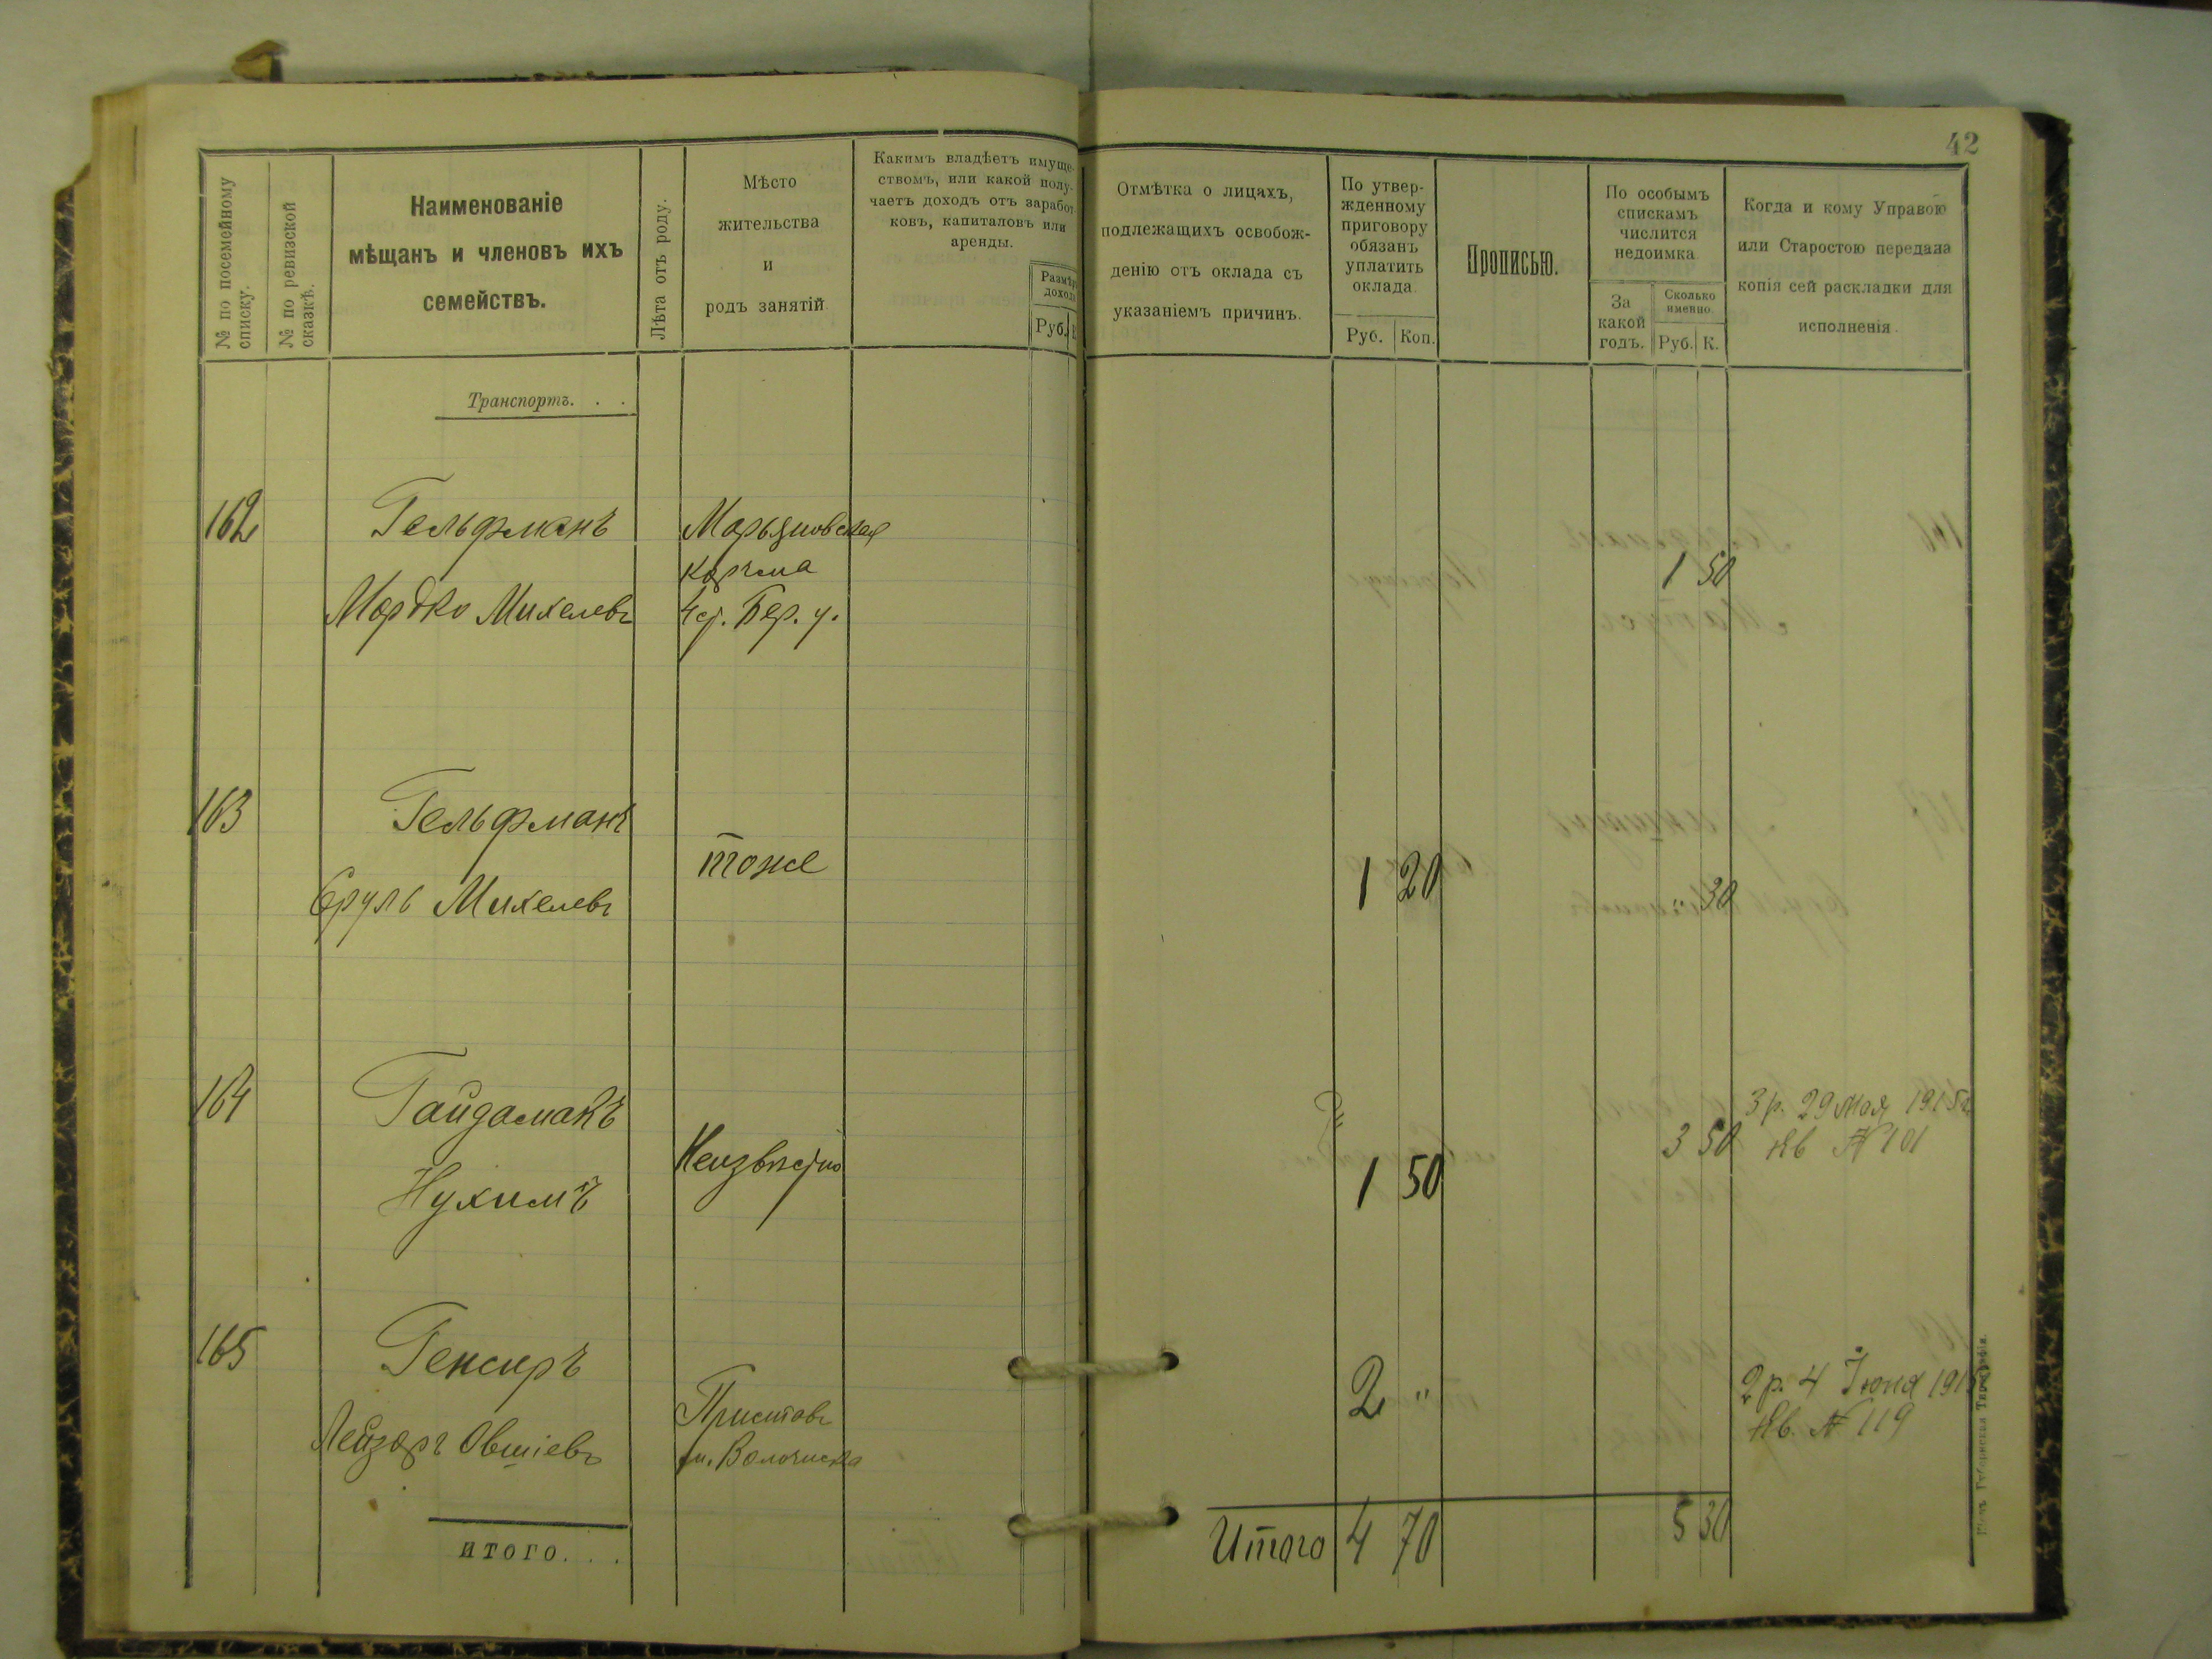 42
№ по посемейному
списку.
№ по ревизской
сказкѣ.
Наименованіе
мѣщанъ и членовъ ихъ
семействъ.
Лѣта отъ роду.
Мѣсто
жительства
и
родъ занятій.
Какимъ владѣетъ имуще-
ствомъ, или какой полу-
чаетъ доходъ отъ заработ
ковъ, капиталовъ или
аренды.
Размѣръ
дохода
Руб.
Отмѣтка о лицахъ,
подлежащихъ освобож-
денію отъ оклада съ
указаніемъ причинъ.
По утвер-
жденному
приговору
обязанъ
уплатить
оклада.
Руб. Коп.
Прописью.
По особымъ
спискамъ
числится
недоимка.
За
какой
годъ.
Сколько
именно.
Руб. К.
Когда и кому Управою
или Старостою передана
копія сей раскладки для
исполненія.
Транспортъ. . .
162 Гельфманъ Марьяновская
корчма
1 50
Мордко Михелевъ Бер. у.
163 Гельфманъ
тоже
1 20 " 30
Сруль Михелевъ
164 Гайдамакъ
3 р. 29 мая 1915 г.
3 50 Кв № 101
Неизвѣстно
1 50
Нухимъ
165 Генсиръ
Приставъ
2 "
2 р. 4 Іюня
Кв. № 119
Лейзоръ Овшіевъ
м. Волочиска
итого. . .
Итого 4 70 5 30